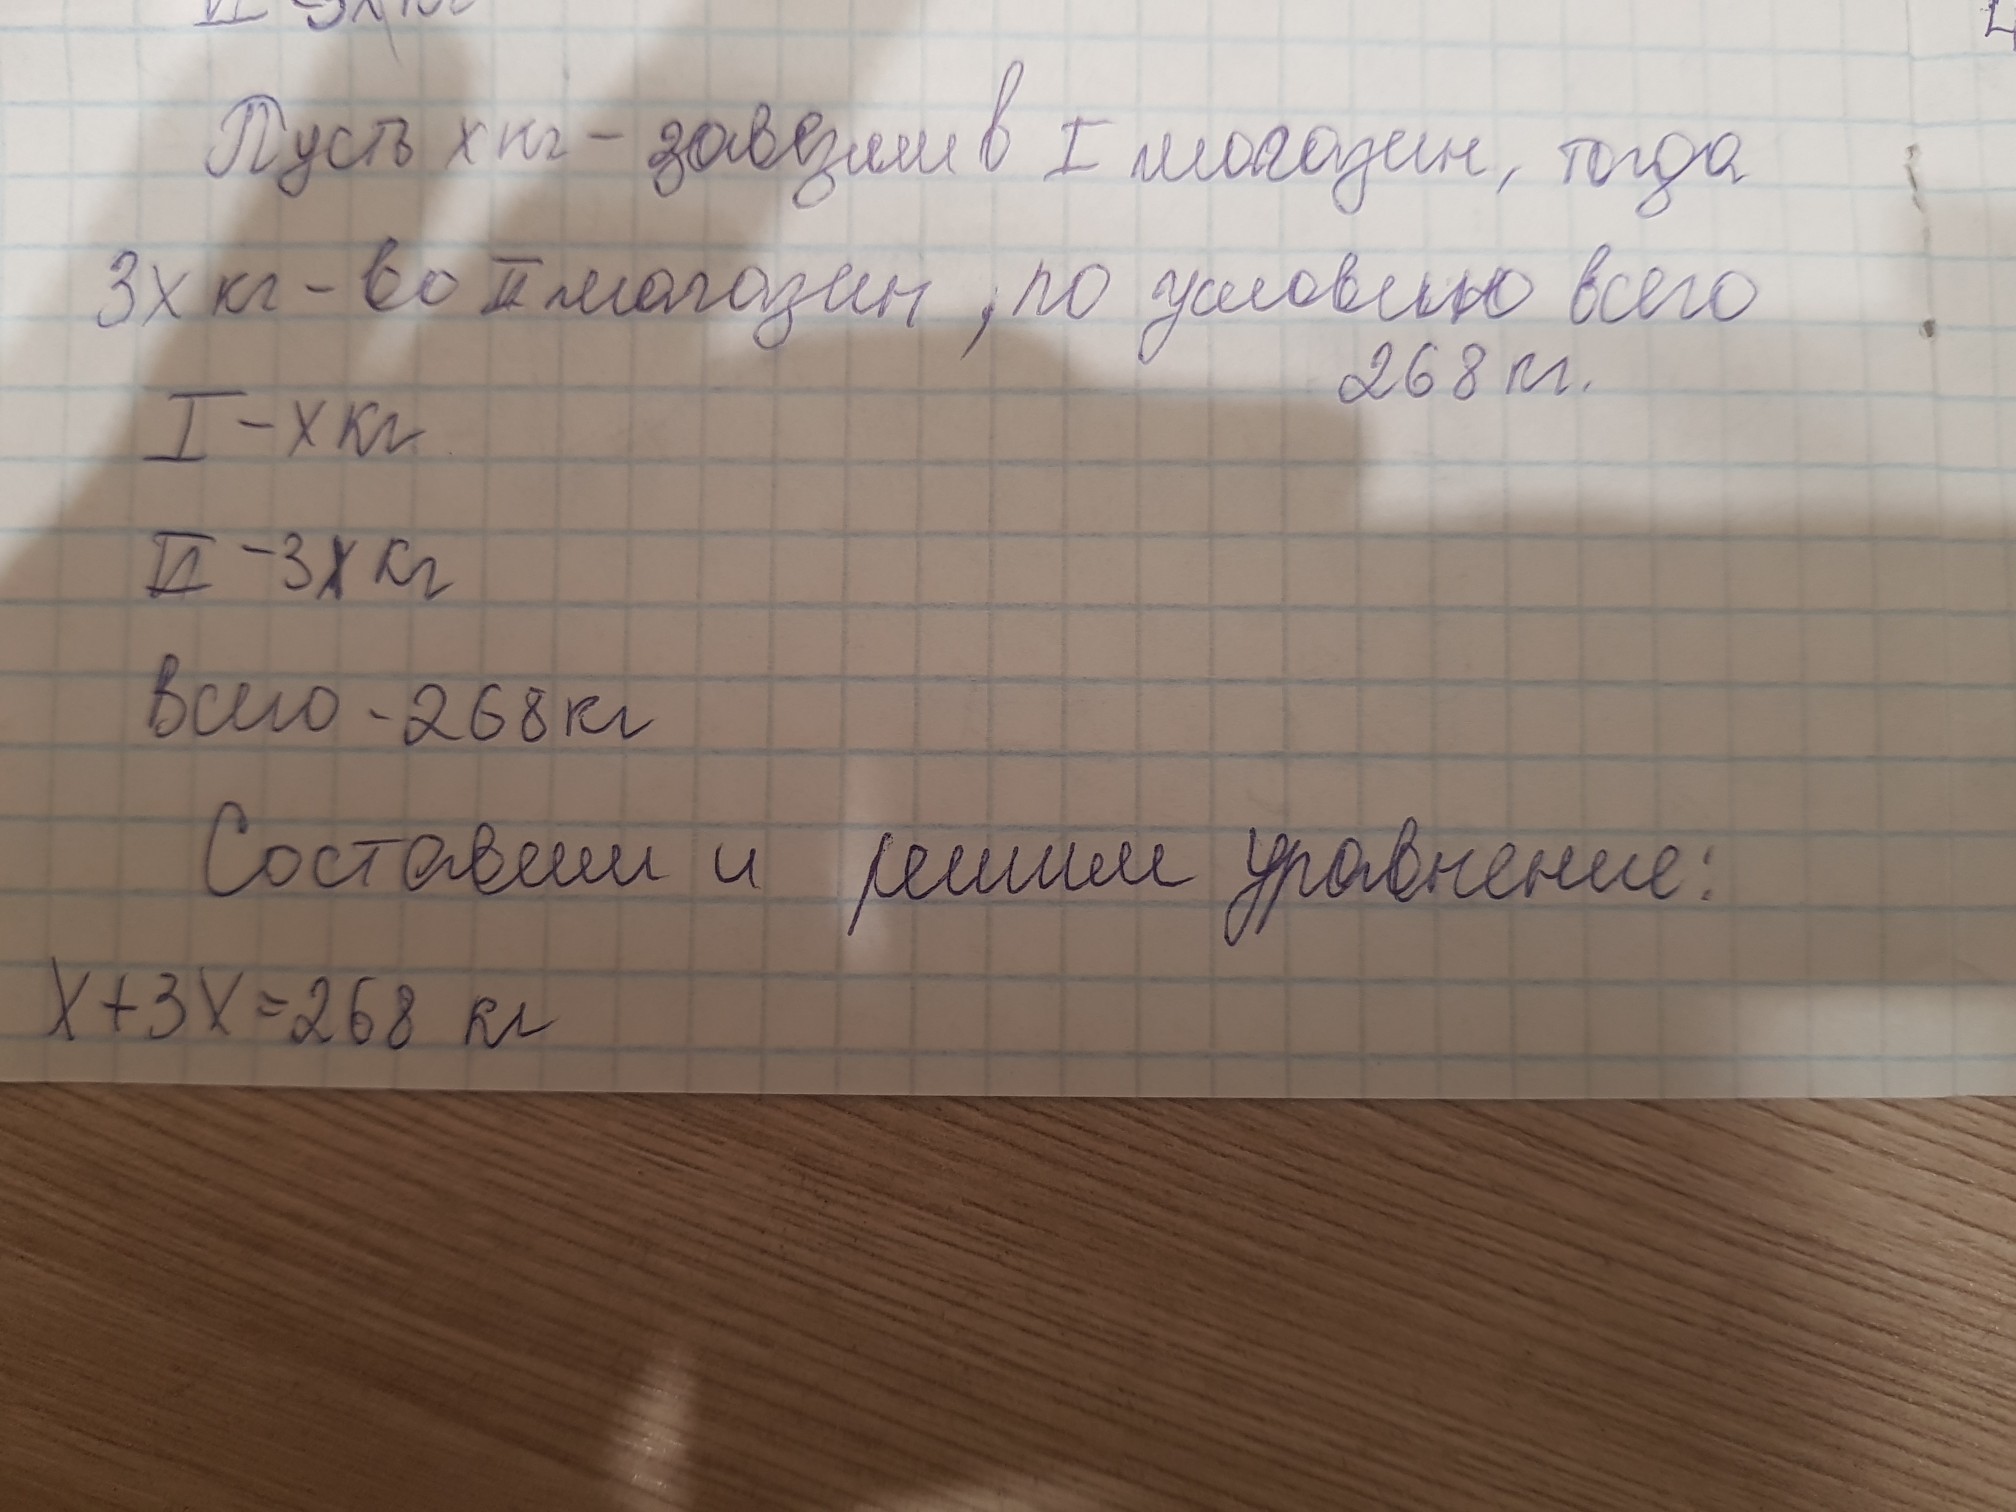 II - 3х кг
Пусть х кг - завезли в I магазин, тогда
3х кг - во II магазин, по условию всего
268 кг.
I - х кг
II - 3х кг
Всего - 268 кг
Составим и решим уравнение:
х+3х=268 кг